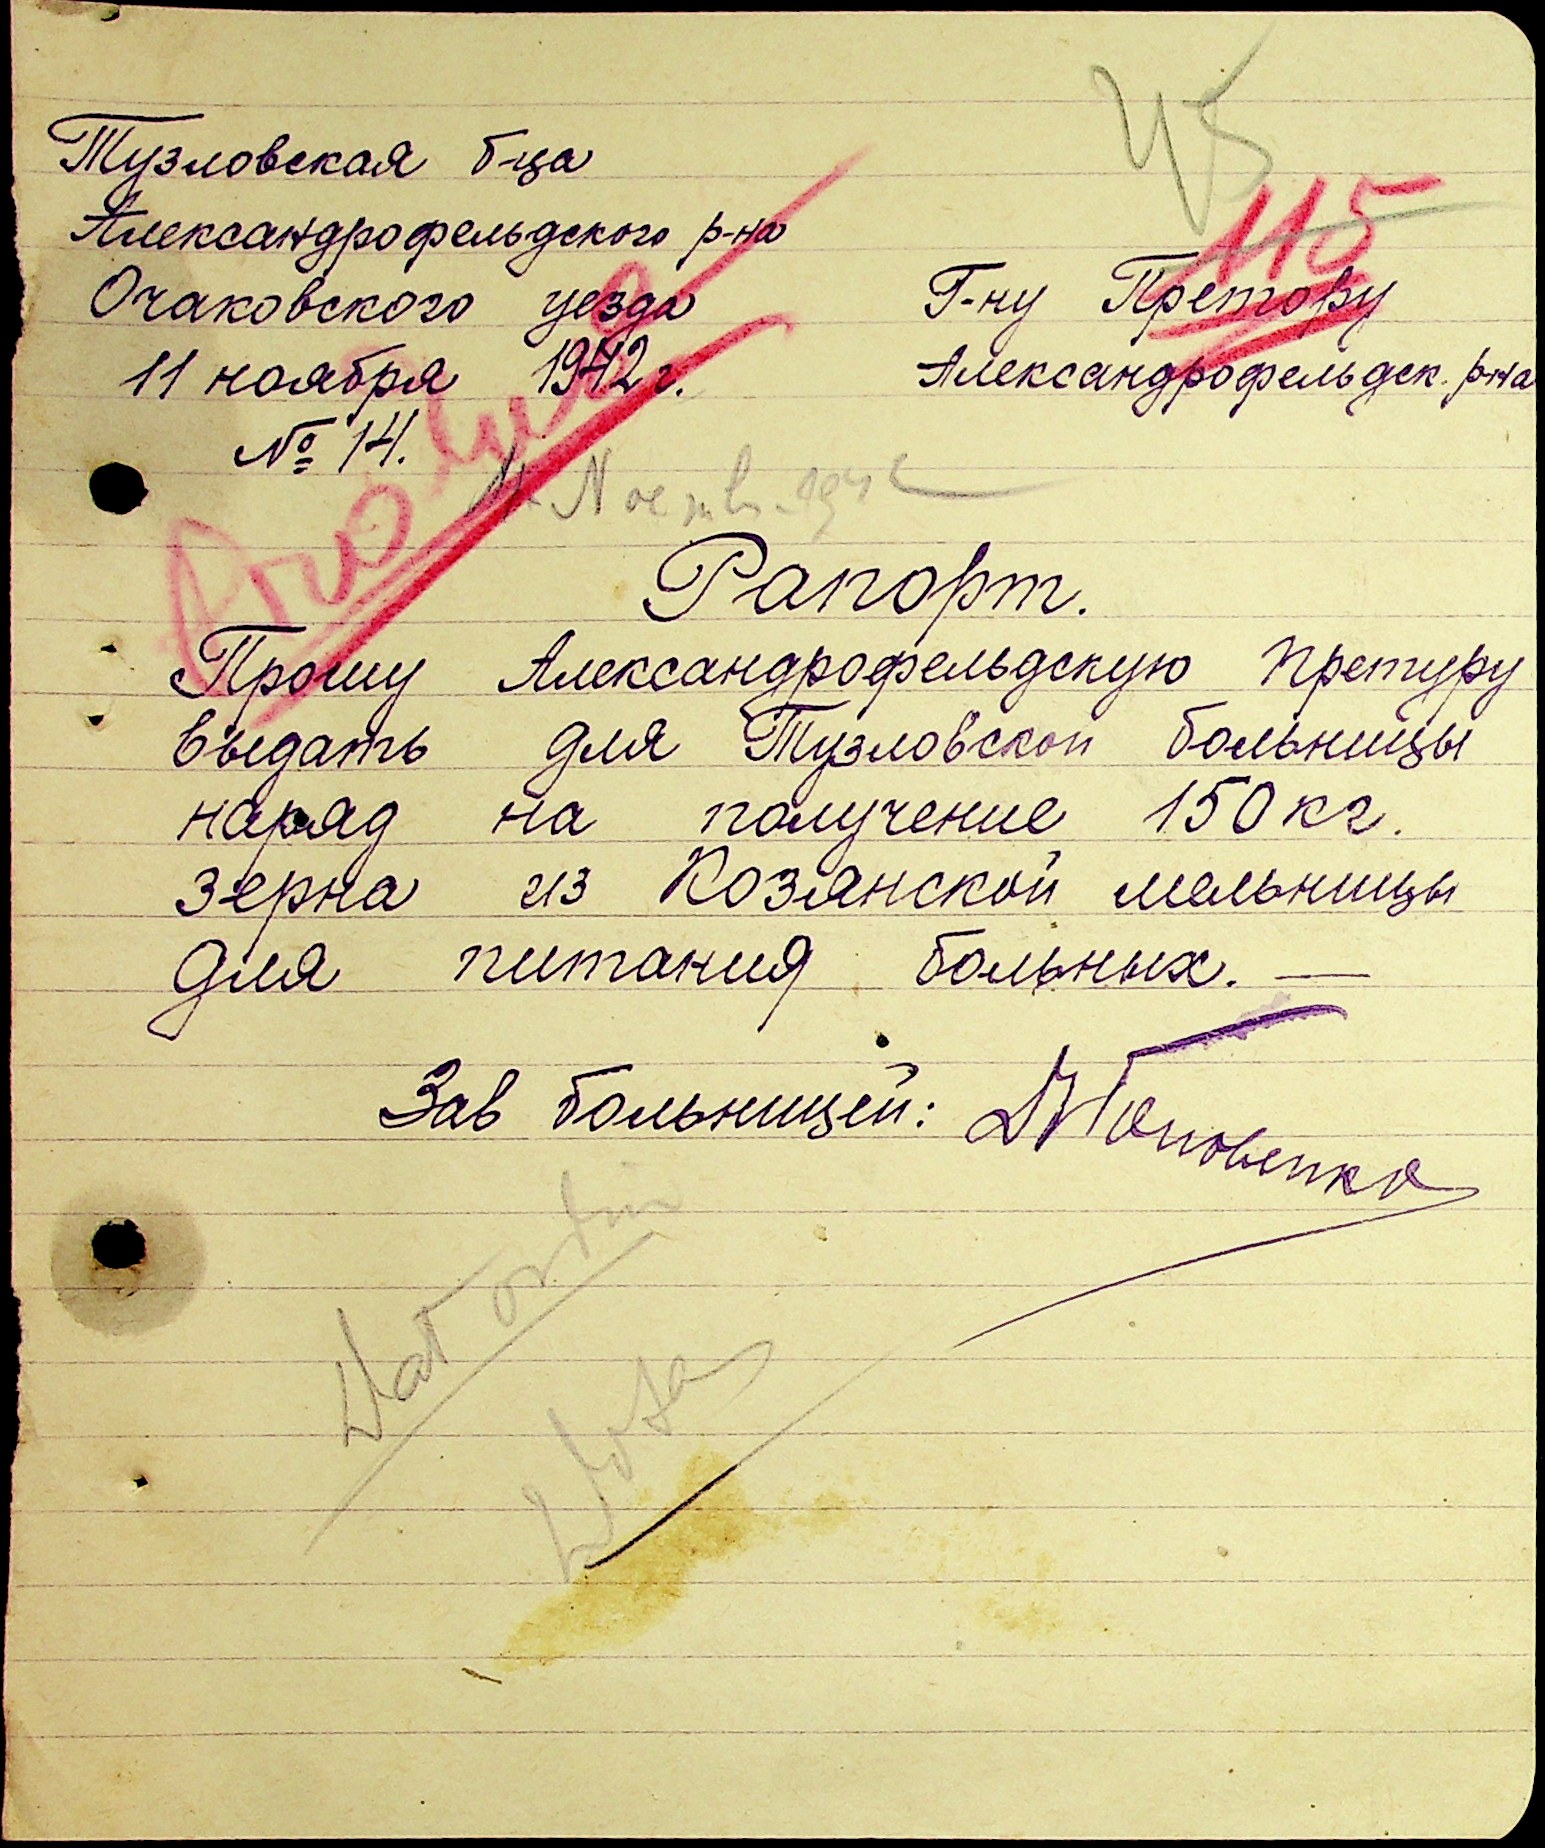 45
115
Тузловская б-ца
Александрофельдского р-на
Очаковского уезда
11 ноября 1942 г.
№ 14.
Г-ну Претору
Александрофельдск. р-на
Рапорт.
Прошу Александрофельдскую Претуру
выдать для Тузловской больницы
наряд на получение 150 кг.
зерна из Козлянской мельницы
для питания больных. —
Зав больницей: